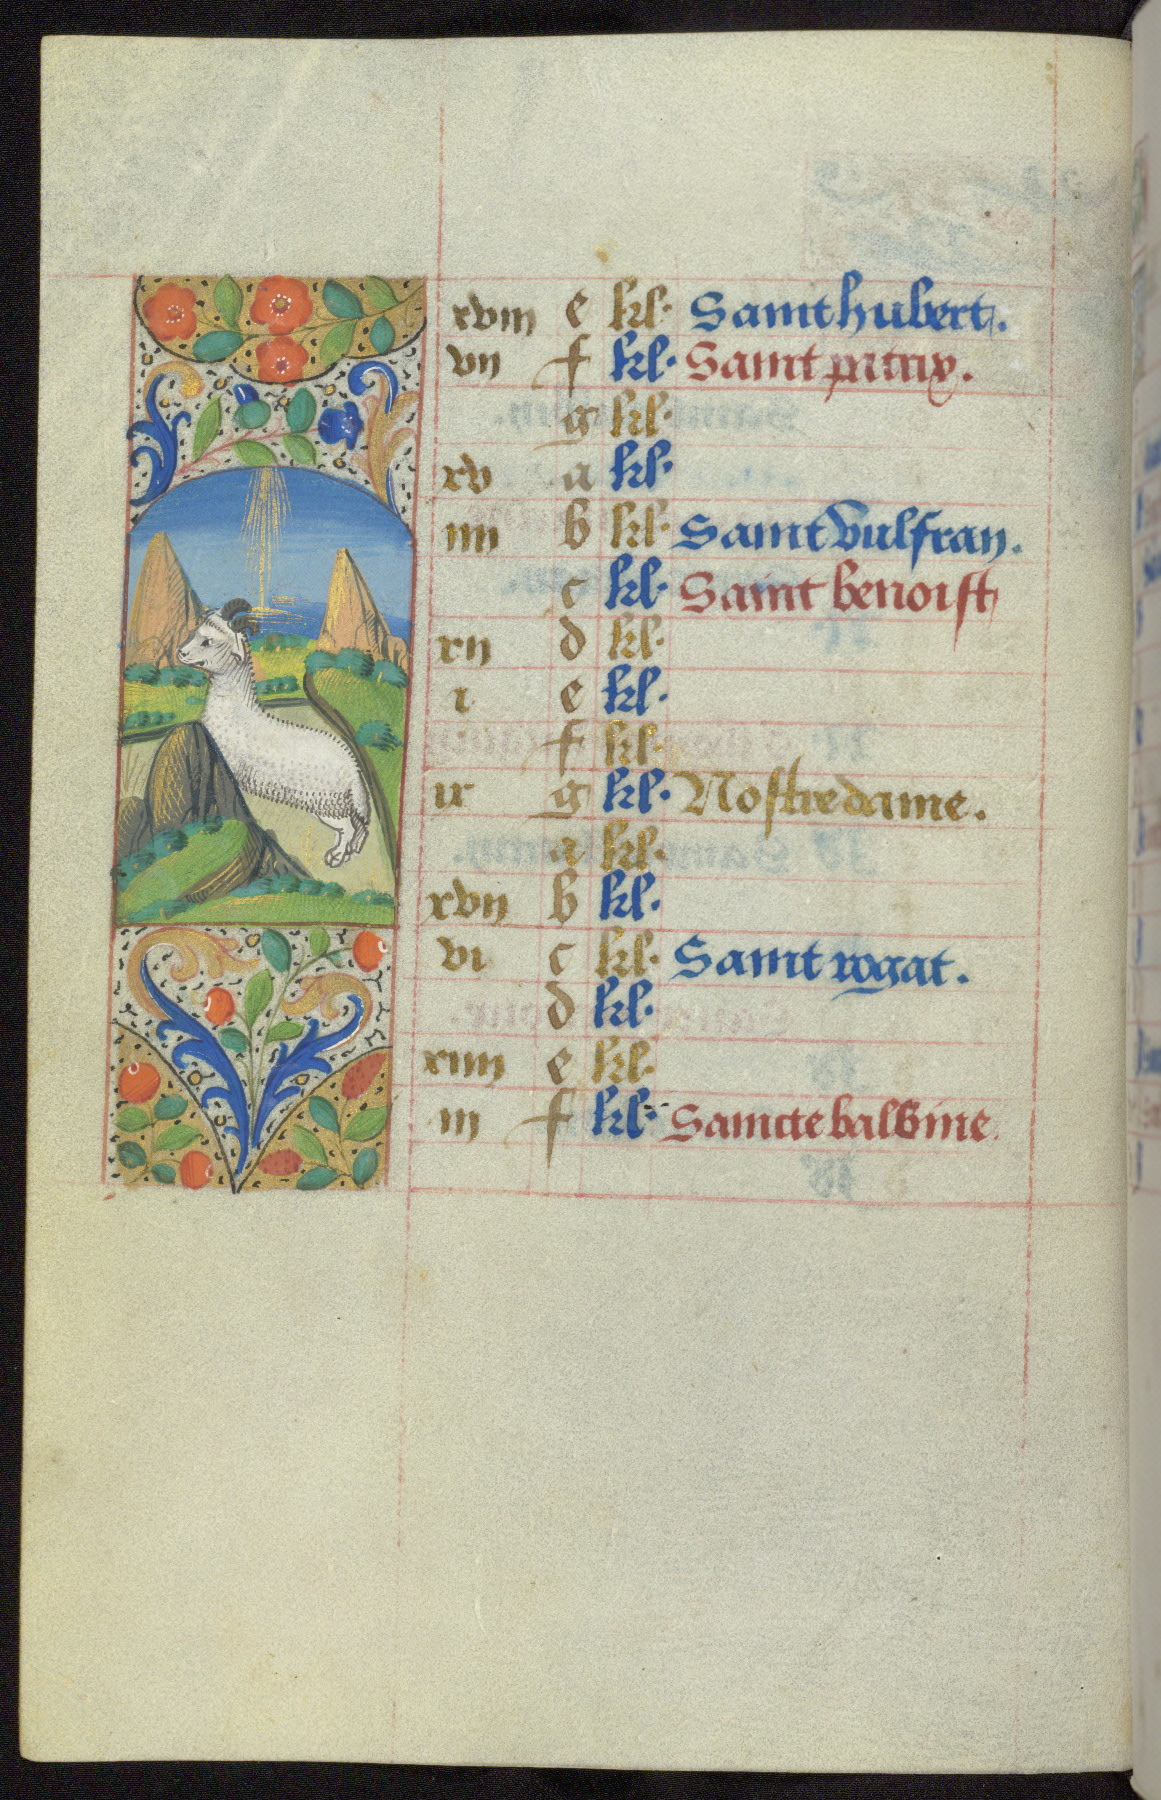 xviii e kl. Saint hubert.
vii f kl. Saint
g kl.
xv a kl.
iiii b kl. Saint vulfran.
c kl. Saint benoist
xii d kl.
i e kl.
f kl.
ix g kl. Nostre dame.
a kl.
xvii b kl.
vi c kl. Saint rogat.
d kl.
xiiii e kl.
iii f kl. Saincte balbine.